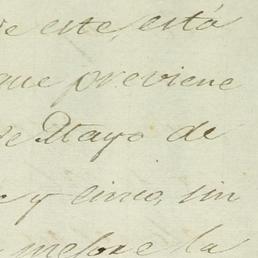 de este, está
que previene
de Mayo de
y cinco, sin
mejore la